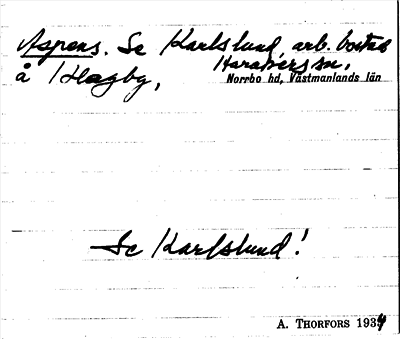 Aspens. Se Karlslund, arb. bostad
å Hagby, Haraker sn,
Norrbo hd, Västmanlands län
Se Karlslund!
A. THORFORS 1934